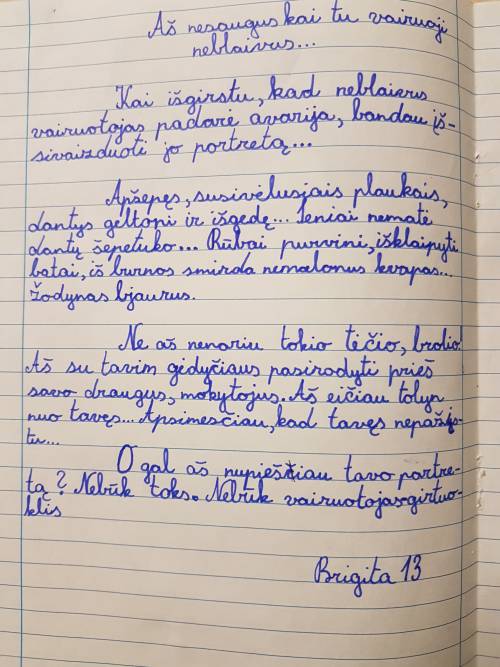 Aš nesaugus kai tu vairuoji
neblaivus...
Kai išgirstu, kad neblaivus
vairuotojas padarė avarija, bandau įs-
sivaizduoti jo portretą...
Apšepęs, susivėlusiais plaukais,
dantys geltoni ir išgedę... Seniai nematė
dantų šepetuko... Rūbai purvini, išklaipyti
batai, iš burnos smirda nemalonus kvapas...
žodynas bjaurus.
Ne aš nenoriu tokio tėčio, brolio.
Aš su tavim gėdyčiaus pasirodyti prieš
savo draugys, mokytojus. Aš eičiau tolyn
nuo tavęs... Apsimesčiau, kad tavęs nepažįs-
tu...
O gal aš nupieščiau tavo portre-
tą? Nebūk toks. Nebūk vairuotojas-girtuo-
klis
Brigita 13